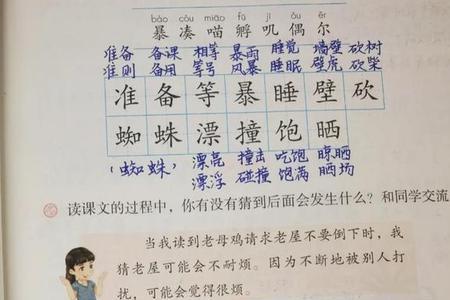 bào còu miāo fū jī ǒu ěr
暴 凑 喵 孵 叽 偶 尔
准备 备课 相等 暴雨 睡觉 墙壁 砍树
准则 备用 等号 风暴 睡眠 壁虎 砍柴
准 备 等 暴 睡 壁 砍
蜘 蛛 漂 撞 饱 晒
(蜘蛛) 漂亮 撞击 吃饱 晾晒
漂浮 碰撞 饱满 晒场
读课文的过程中,你有没有猜到后面会发生什么?和同学交流
当我读到老母鸡请求老屋不要倒下时,我
猜老屋可能会不耐烦。因为不断地被别人打
扰,可能会觉得很烦。